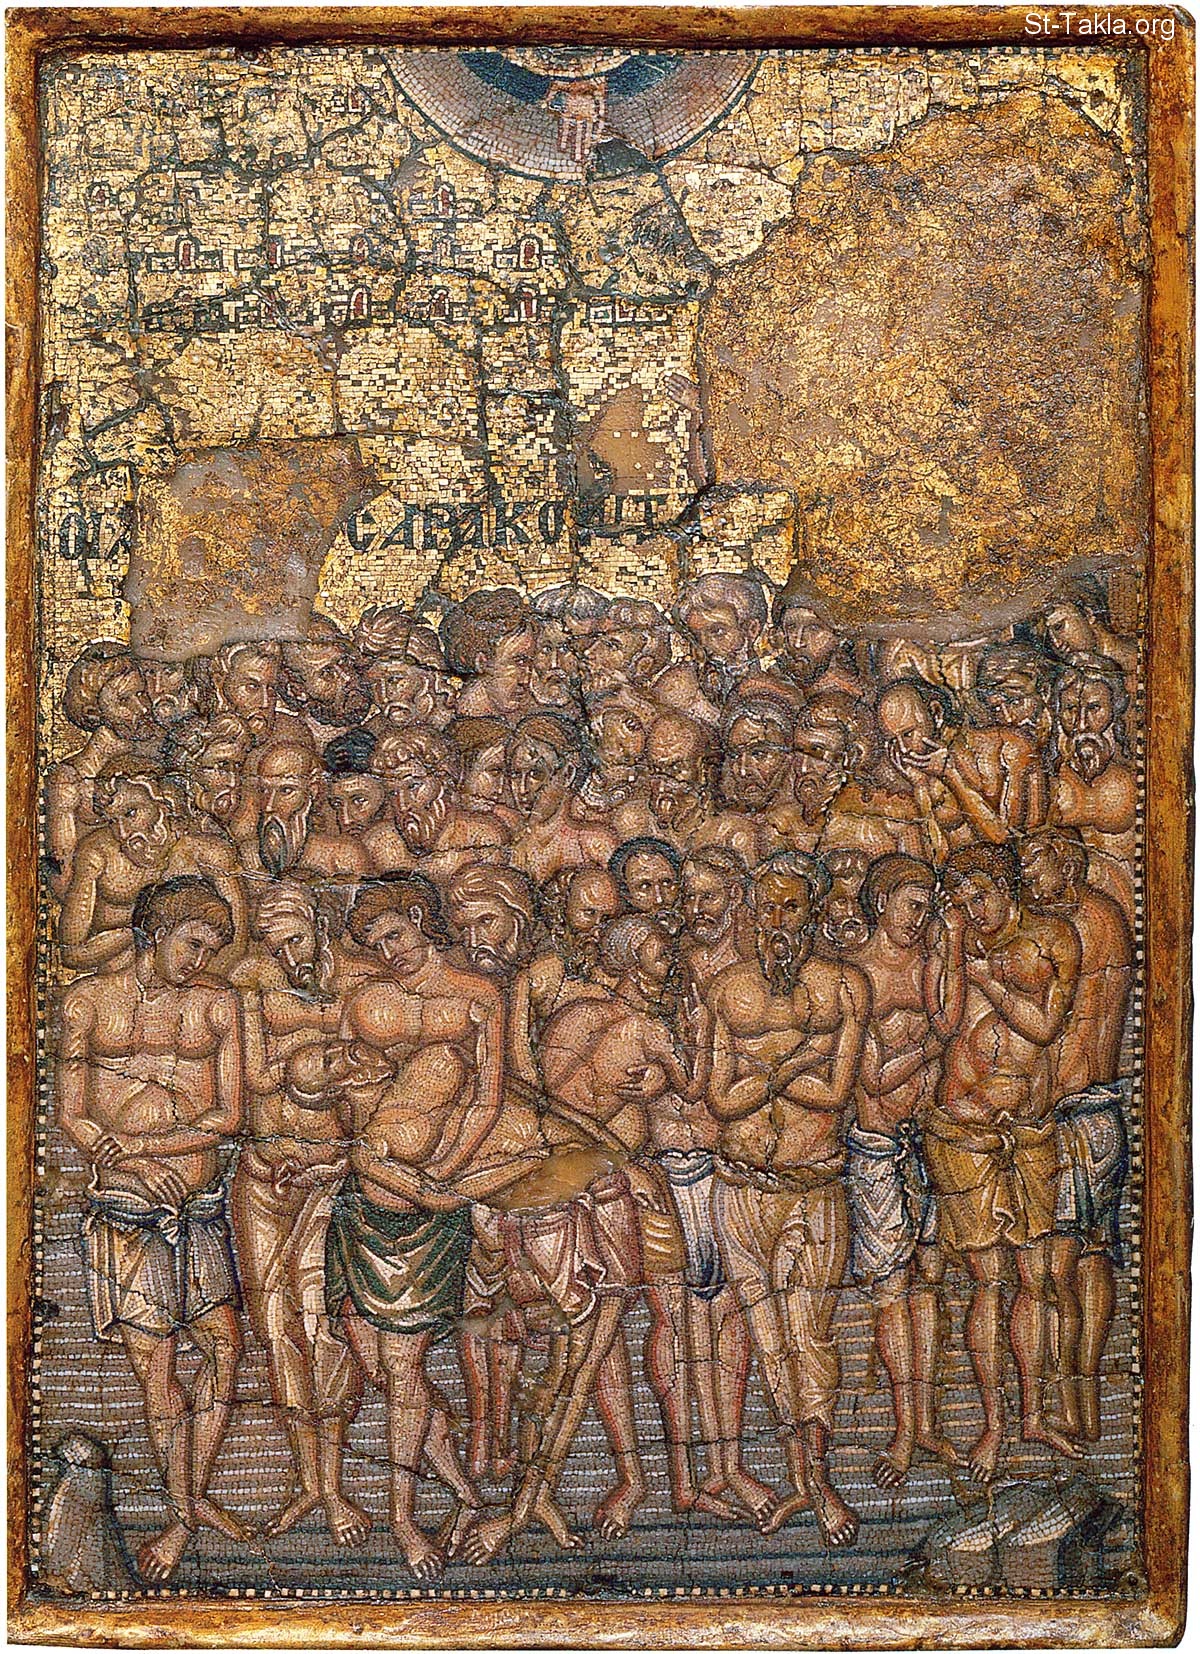 St-Takla.org
ΟΙ Α ϹΑΡΑΚΟΝΤ